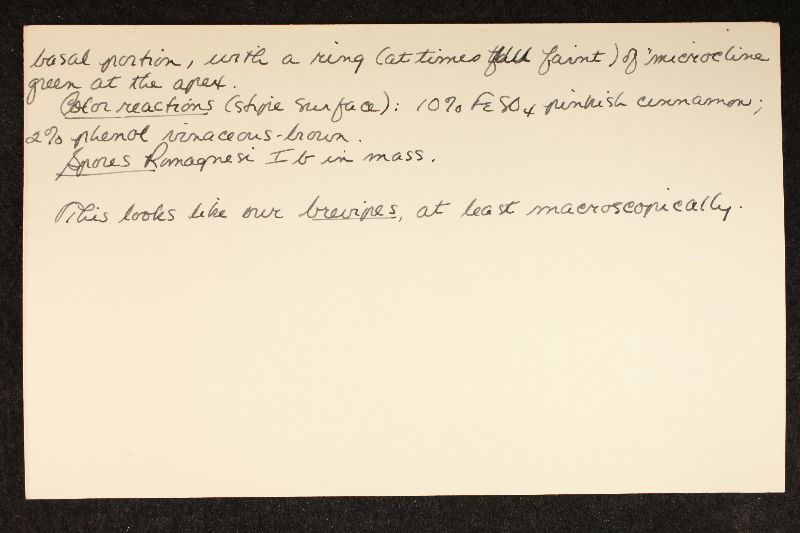 basal portion, with a ring (at times faint) of "microcline
green at the apex.
Color reactions (stipe surface): 10% FeSO4 pinkish cinnamon;
2% phenol vinaceous-brown.
Spores Romagnesi I b in mass.
This looks like our brevipes, at least macroscopically.